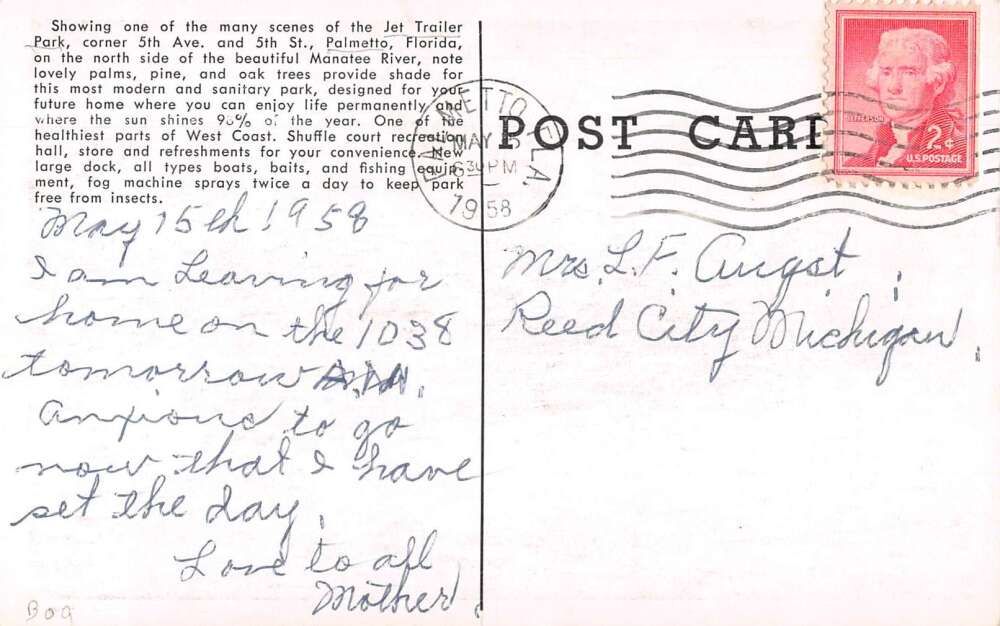 Showing one of the many scenes of the Jet Trailer
Park, corner 5th Ave. and 5th St., Palmetto, Florida,
on the north side of the beautiful Manatee River, note
lovely palms, pine, and oak trees provide shade for
this most modern and sanitary park, designed for your
future home where you can enjoy life permanently and
where the sun shines 96% of the year. One of the
healthiest parts of West Coast. Shuffle court recreation
hall, store and refreshments for your convenience. New
large dock, all types boats, baits, and fishing equip-
ment, fog machine sprays twice a day to keep park
free from insects.
May 15th 1958
I am Leaving for
home on the 1038
tomorrow A.M.
Anxious to go
now that I have
set the day.
Love to all
Mother.
Bog
PALMETTO FLA.
MAY
630 PM
1958
POST CARD
JEFFERSON
2¢
U.S. POSTAGE
Mrs. L. F. Augst.
Reed City Michigan.